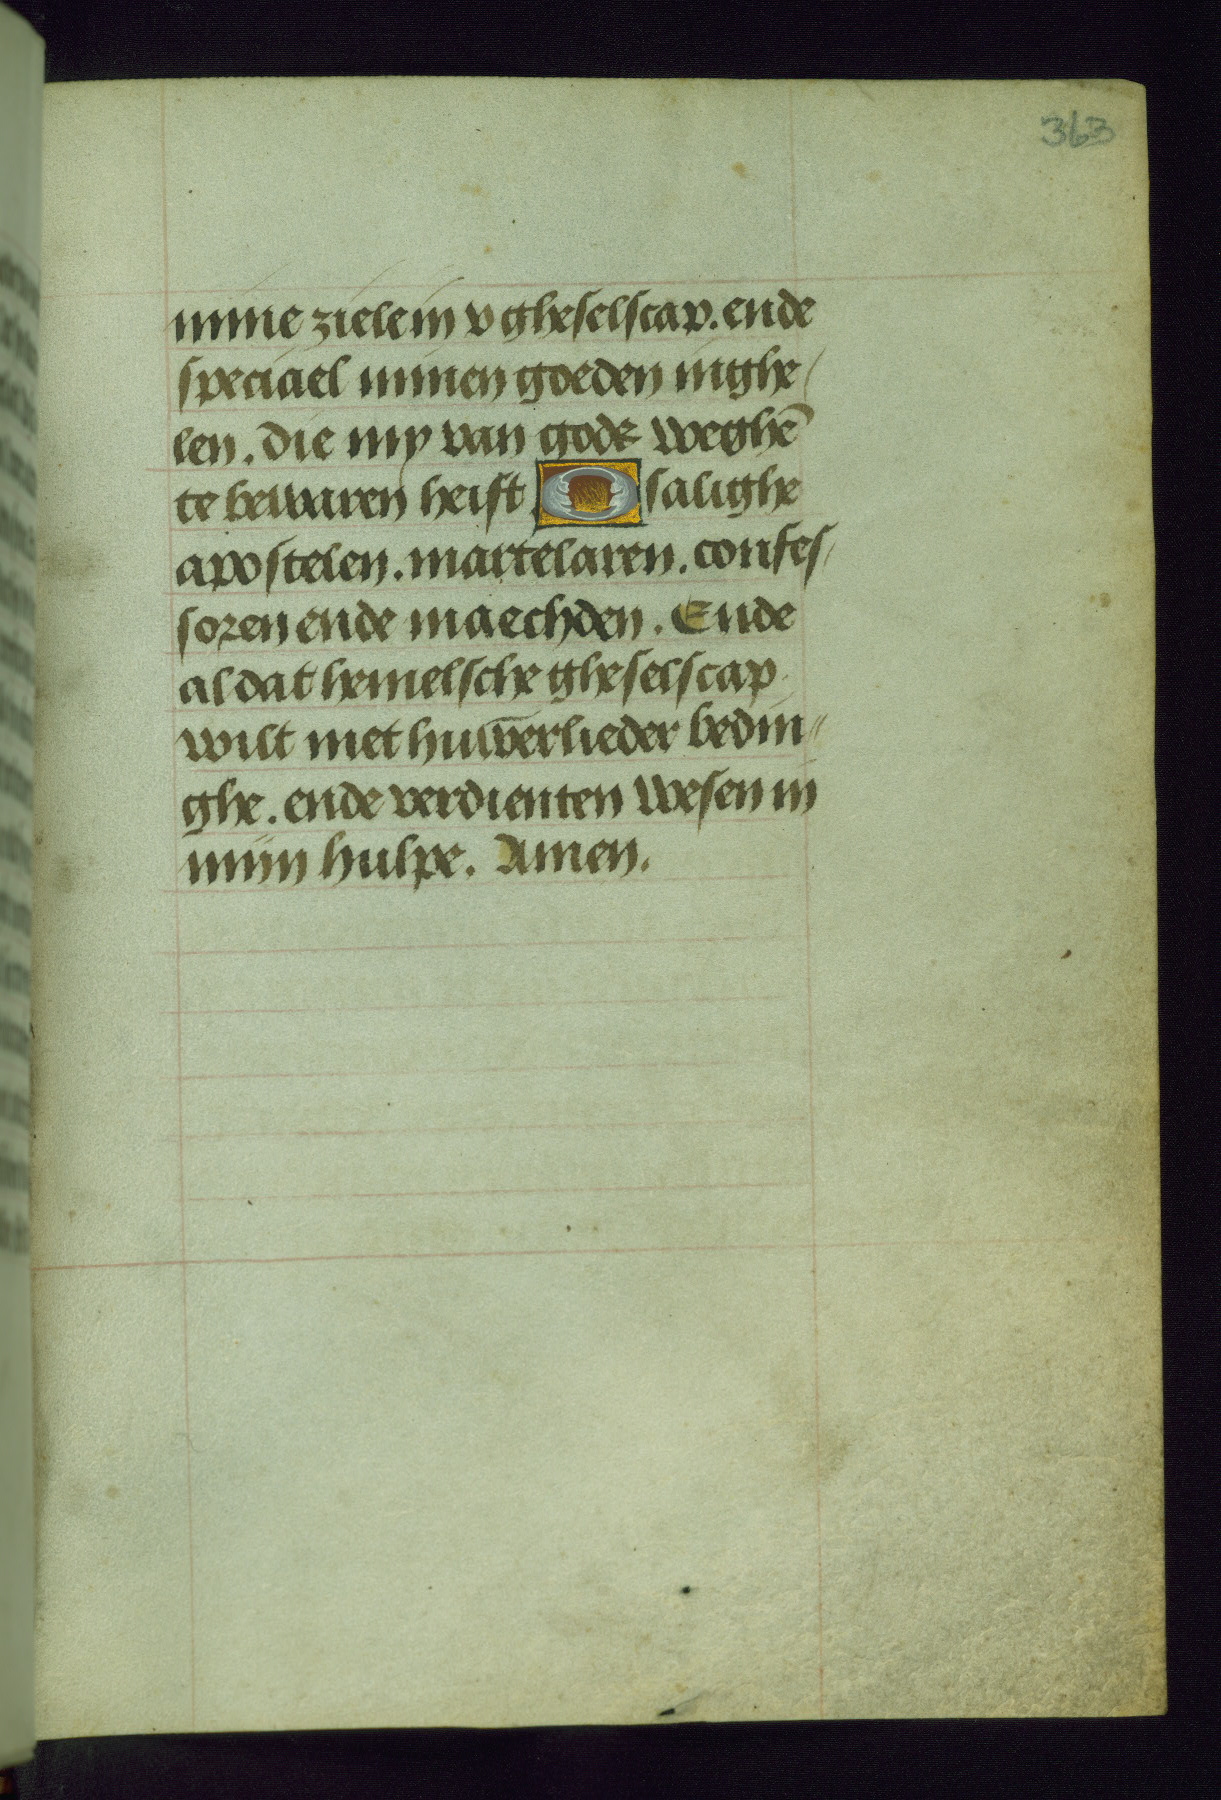 363
mine ziele in v gheselscap. ende
speciael minen goeden inghe/
len. die my van gods weghē
te bewaren heift. O salighe
apostelen. martelaren. confes/
soren ende maechden. Ende
al dat hemelsche gheselscap
wilt met huwerlieder bedin//
ghe. ende verdienten wesen in
mijn hulpe. Amen.